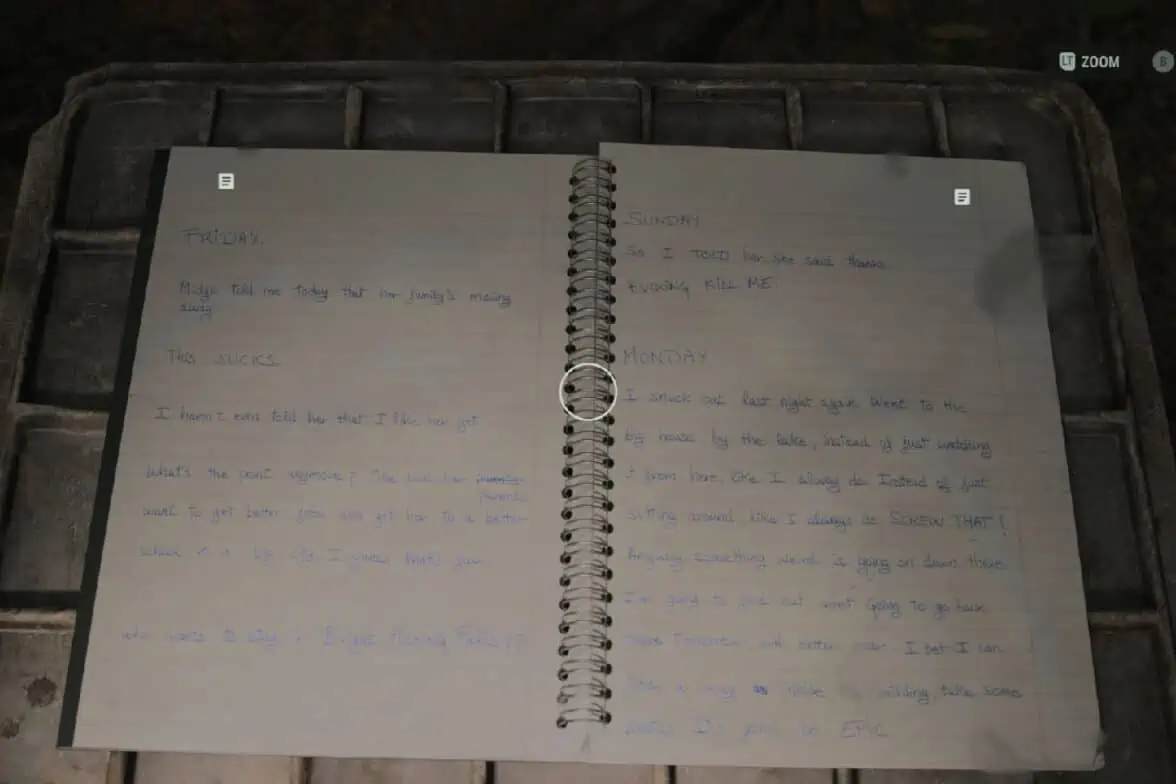 LT ZOOM
B
FRIDAY.
Midge told me today that her family's moving
away
This SUCKS
I haven't even told her that I like her yet
What's the point anymore? She said her
parents
want to get better jobs and get her to a better
school in a big city I guess that's fair
who wants to stay in Bright Falls??
SUNDAY
So I TOLD her she said thanks
FUCKING KILL ME
MONDAY
I snuck out last night again. Went to the
big house by the lake, instead of just watching
it from here, like I always do Instead of just
sitting around like I always do SCREW THAT!
Anyway something weird is going on down there
I'm going to find out what Going to go back
there tomorrow, with better gear. I bet I can
find a way inside the building, take some
photos It's gonna be EPIC